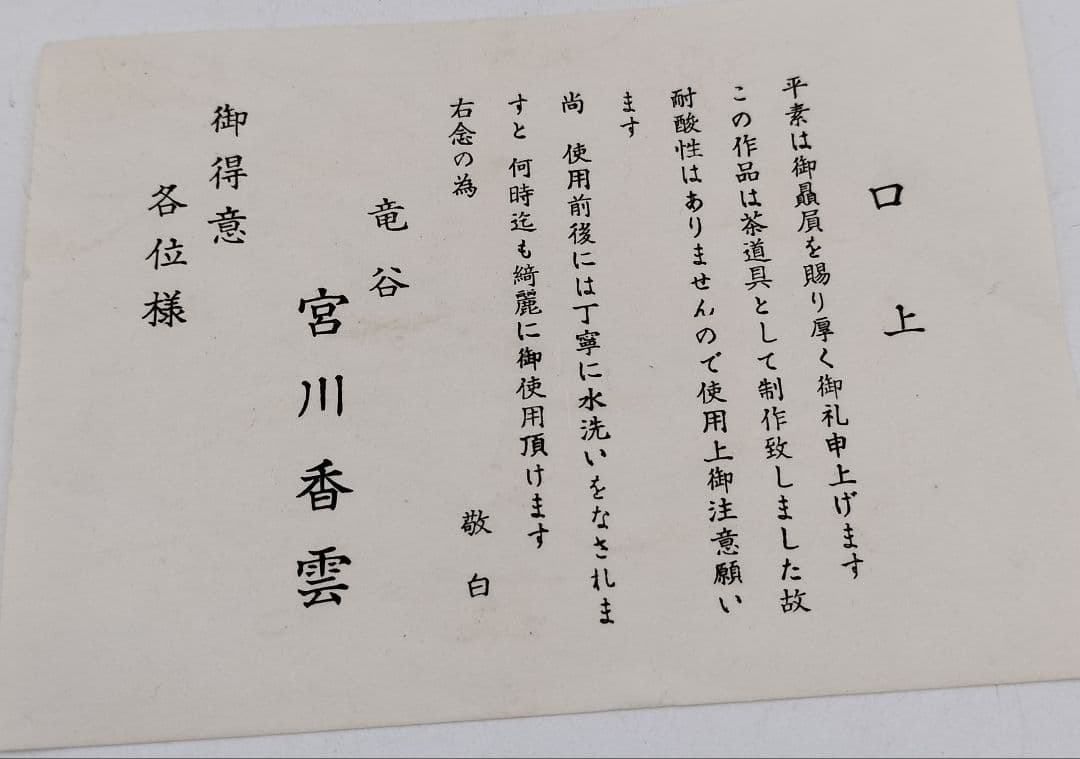 口上
平素は御贔屓を賜り厚く御礼申上げます
この作品は茶道具として制作致しました故
耐酸性はありませんので使用上御注意願い
ます
尚 使用前後には丁寧に水洗いをなされま
すと 何時迄も綺麗に御使用頂けます
右念の為
敬白
竜谷
宮川香雲
御得意
各位様